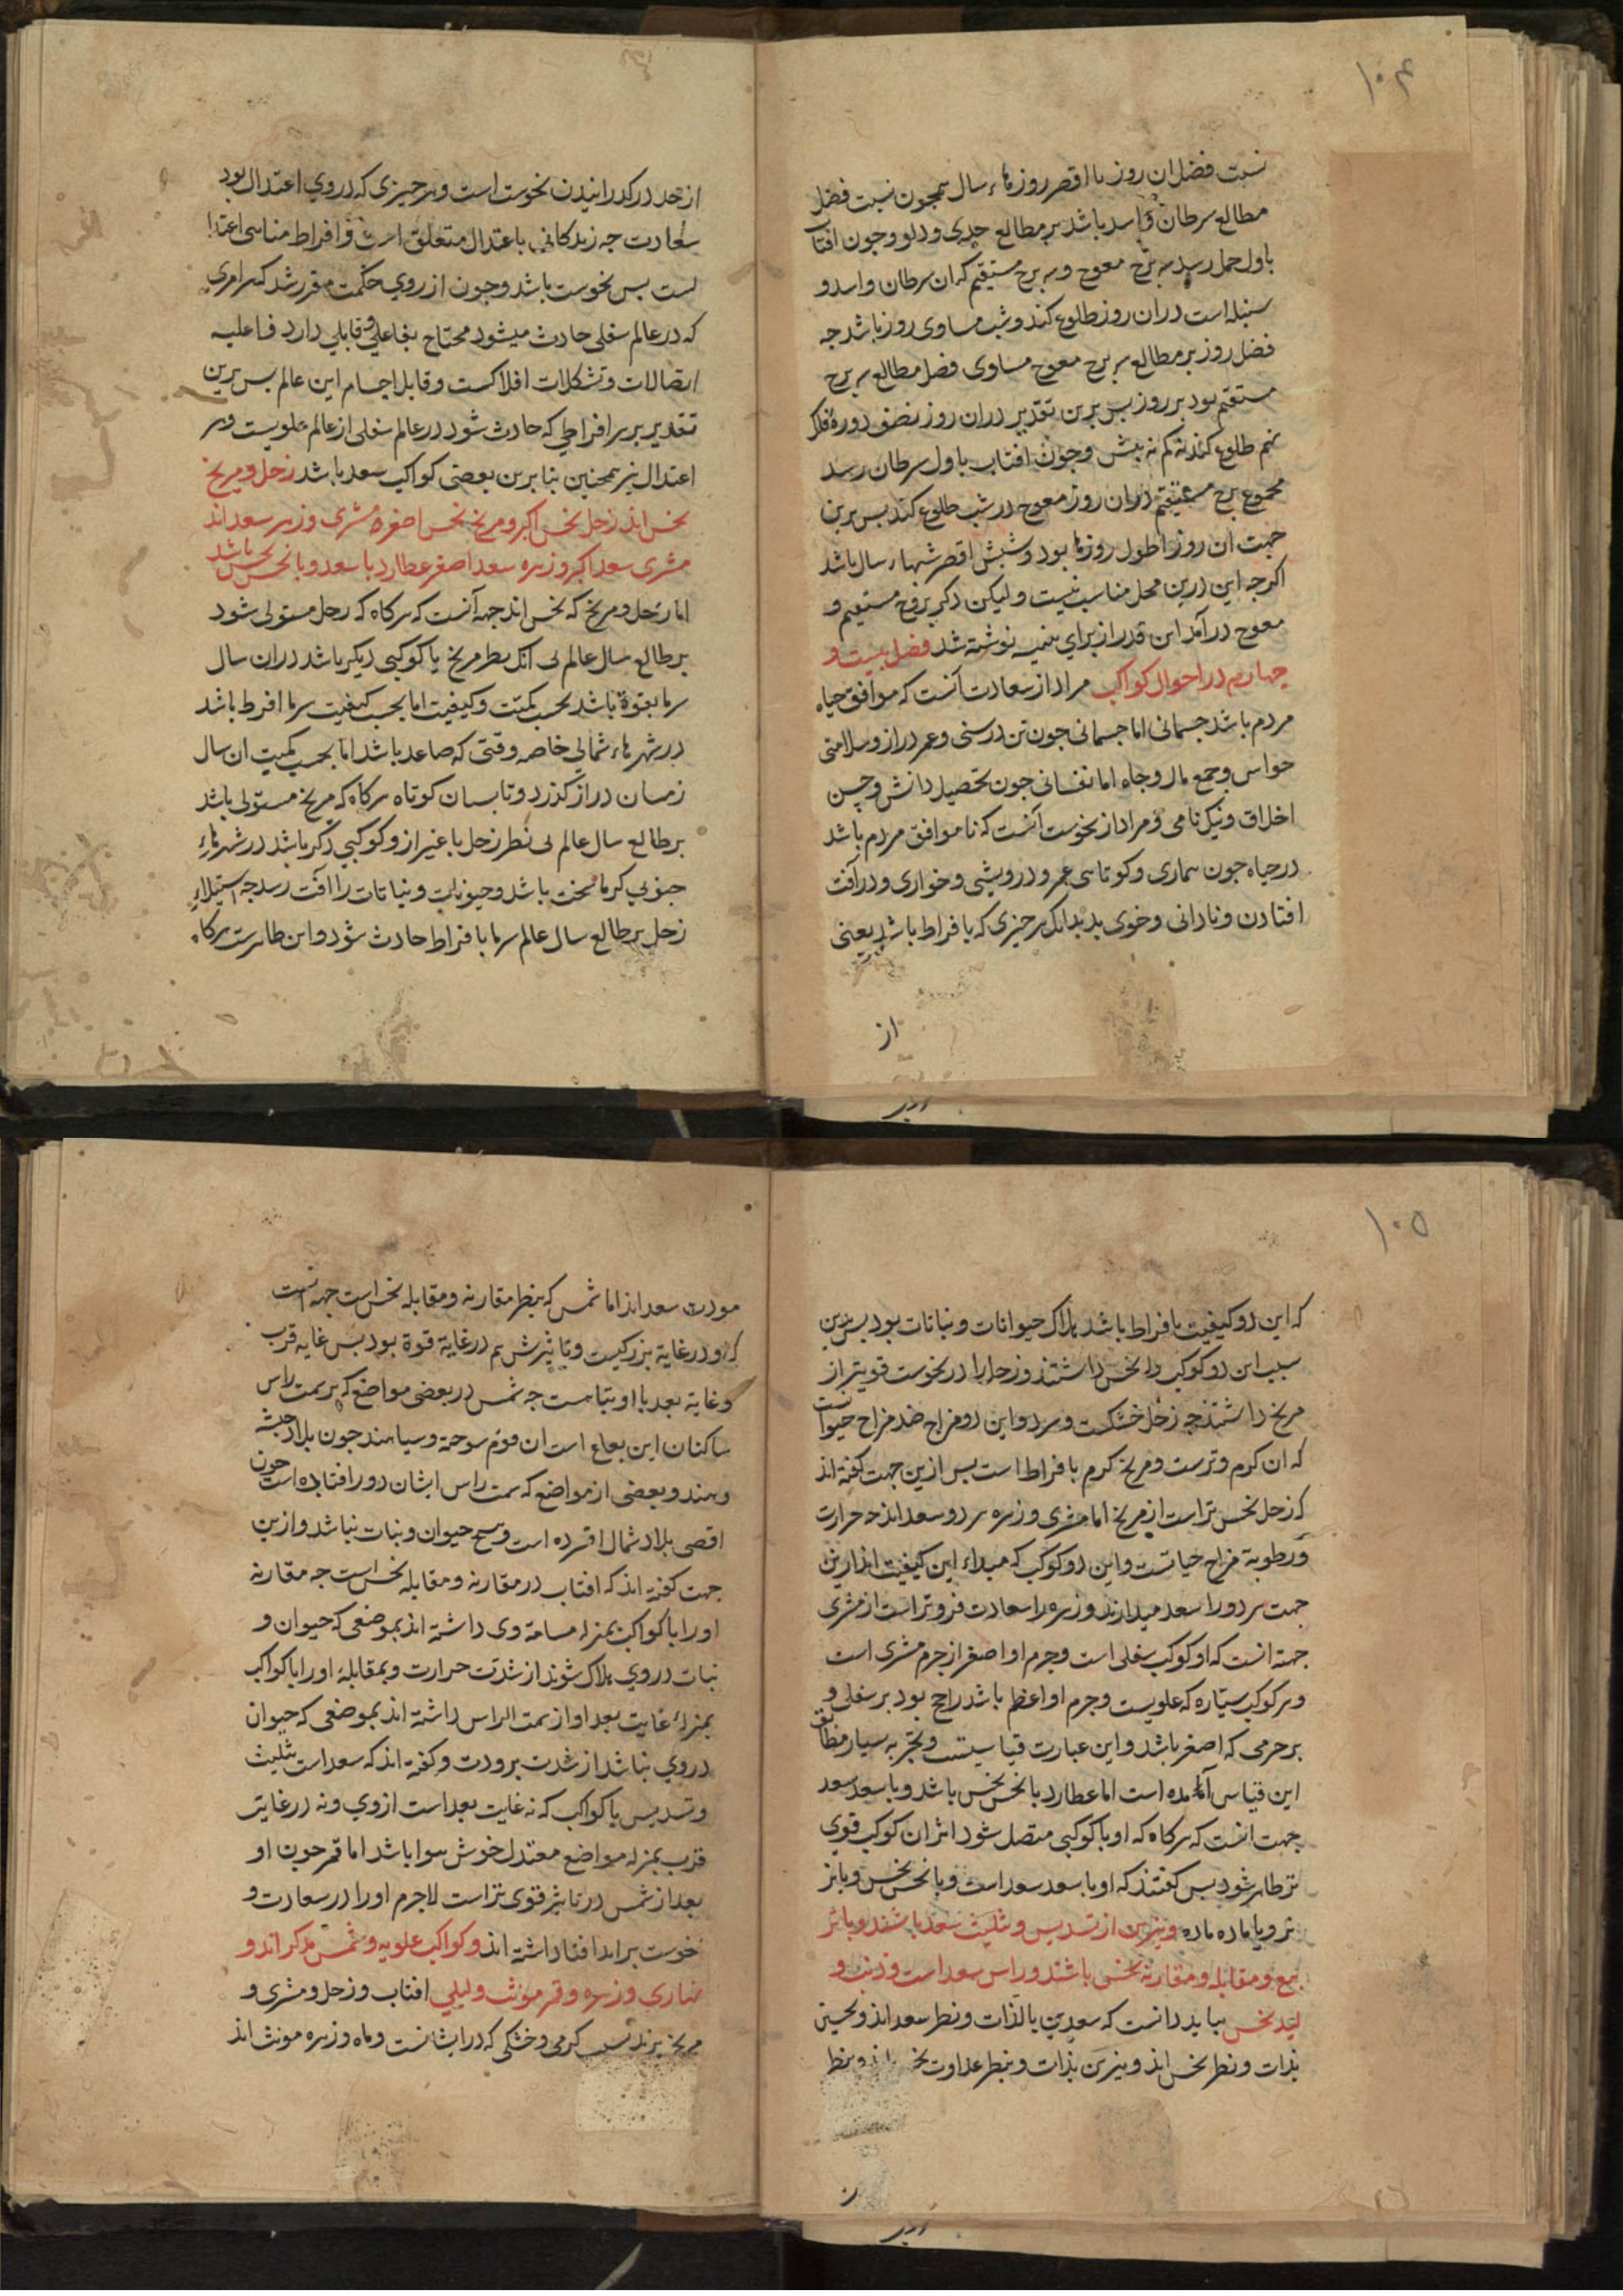 ۱۰۴
نسبت فضل ان روز با اقصر روزهاء سال همچون نسبت فضل
مطالع سرطان و اسد باشد بر مطالع جدی و دلو و چون افتاب
باول حمل رسد سه برج معوج و سه برج مستقیم که ان سرطان و اسد و
سنبله است دران روز طلوع کند و شب مساوی روز باشد جه
فضل روز بر مطالع سه برج معوج مساوی فضل مطالع سه برج
مستقیم بود بر روز بس برین تقدیر دران روز نصف دوره فلک
نهم طلوع کند نه کم نه بیش و جون افتاب باول سرطان رسد
مجموع برج مستقیم دران روز و معوج در شب طلوع کند بس برین
جهت ان روز اطول روزها بود و شبش اقصر شبهاء سال باشد
اکرجه این درین محل مناسب نیست و لیکن ذکر بروج مستقیم و
معوج درآمد این قدر از برای تنبیه نوشته شد فصل بیست و
چهارم در احوال کواکب مراد از سعادت آنست که موافق حیاه
مردم باشد جسمانی اما جسمانی جون تن درستی و عمر دراز و سلامتی
حواس و جمع مال و جاه اما نفسانی جون تحصیل دانش و حسن
اخلاق و نیک نامی و مراد از نحوست آنست که ناموافق مردم باشد
در حیاه جون بیماری و کوتاهی عمر و درویشی و خواری و در آفت
افتادن و نادانی و خوی بد بدانک هر جیزی که بافراط باشد یعنی
از
از حد درکذرانیدن نحوست است و هر جیزی که در روی اعتدال بود
سعادت جه زندکانی باعتدال متعلق است و افراط مناسی اعتدا!
نست بس نحوست باشد و جون از روی حکمت مقرر شد که هر امری
که در عالم سفلی حادث میشود محتاج بفاعلی و قابلی دارد فاعلیه
اتصالات و تشکلات افلاکست و قابل اجسام این عالم بس برین
تقدیر بر هر افراطی که حادث شود در عالم سفلی از عالم علویست و هر
اعتدال نیز همجنین بنا برین بعضی کواکب سعد باشد زحل و مریخ
نحس اند زحل نحس اکبر و مریخ نحس اصغر و مشتری و زهره سعد اند
مشتری سعد اکبر و زهره سعد اصغر عطارد با سعد و با نحس نحس باشد
اما زحل و مریخ که نحس اند جهه آنست که هرکاه که زحل مستولی شود
بر طالع سال عالم بی انک نظر مریخ یا کوکبی دیکر باشد دران سال
سرما بقوة باشد بحسب کمیت و کیفیت اما بحسب کیفیت سرما افرط باشد
در شهرهاء شمالی خاصه وقتی که صاعد باشد اما بحسب کمیت ان سال
زمستان دراز کذرد و تابستان کوتاه هرکاه که مریخ مستولی باشد
بر طالع سال عالم بی نظر زحل با غیر از و کوکبی دکر باشد در شهرهاء
جنوبی کرما سخت باشد و حیوانات و نباتات را افت رسد جه استیلاء
زحل بر طالع سال عالم سرما بافراط حادث شود و این ظاهرست هرکاه
۱۰۵
که این دو کیفیت بافراط باشد هلاک حیوانات و نباتات بود بس بدین
سبب این دو کوکب را نحس داشتند و زحل را در نحوست قویتر از
مریخ داشتند جه زحل خشکست و سرد و این دو مزاج ضد مزاج حیوانست
که ان کرم و ترست و مریخ کرم بافراط است بس ازین جهت کفته اند
که زحل نحس تر است از مریخ اما مشتری و زهره هر دو سعد اند جه حرارت
و رطوبة مزاج حیاتست و این دو کوکب که مبداء این کیفیت اند ازین
جهت هر دو را سعد میدارند و زهره را سعادت فروتر است از مشتری
جهته انست که او کوکب سفلی است و جرم او اصغر از جرم مشتری است
و هر کوکب سیاره که علویست و جرم او اعظم باشد راجح بود بر سفلی و
بر جرمی که اصغر باشد و این عبارت قیاسیست و تجربه بسیار مطابق
این قیاس آمده است اما عطارد با نحس نحس باشد و با سعد سعد
جهت انست که هرکاه که او با کوکبی متصل شود اثر ان کوکب قوی
تر ظاهر شود بس کفتند که او با سعد سعد است و با نحس نحس و با نر
نر و با ماده ماده و نیرین از تسدیس و تثلیث سعد باشند و با تر
بیع و مقابله و مقارنه نحس باشند و راس سعد است و ذنب و
لید نحس بباید دانست که سعدین بالذات و نظر سعد اند و نحسین
بذات و نظر نحس اند و نیرین بذات و بنظر عداوت نحس اند و بنظر
مودت سعد اند اما شمس که بنظر مقارنه و مقابله نحس است جهه انست
که او در غایة بزرکیست و تاثیرش هم در غایة قوة بود بس غایه قرب
و غایة بعد با او تباهست جه شمس در بعضی مواضع که بر سمت راس
ساکنان این بقاع است ان قوم سوخته و سیاهند جون بلاد حبشه
و هند و بعضی از مواضع که سمت راس ایشان دور افتاده است جون
اقصی بلاد شمال افسرده است و هیچ حیوان و نبات نباشد و ازین
جهت کفته اند که افتاب در مقارنه و مقابله نحس است جه مقارنه
او را با کواکب بمنزله مسامته وی داشته اند بموضعی که حیوان و
نبات در وی هلاک شوند از شدت حرارت و بمقابله او را با کواکب
بمنزله غایت بعد او از سمت الراس داشته اند بموضعی که حیوان
در وی نباشد از شدت برودت و کفته اند که سعد است بتثلیث
و تسدیس با کواکب که نه غایت بعد است از وی و نه در غایتر
قرب بمنزله مواضع معتدل خوش هوا باشد اما قمر جون او
بعد از شمس در تاثیر قوی تر است لاجرم او را در سعادت و
نحوست برابر افتاب داشته اند و کواکب علویه و شمس مذکر اند و
نهاری و زهره و قمر مونث و لیلی افتاب و زحل و مشتری و
مریخ نرند بسبب کرمی و خشکی که در ایشانست و ماه و زهره مونث اند